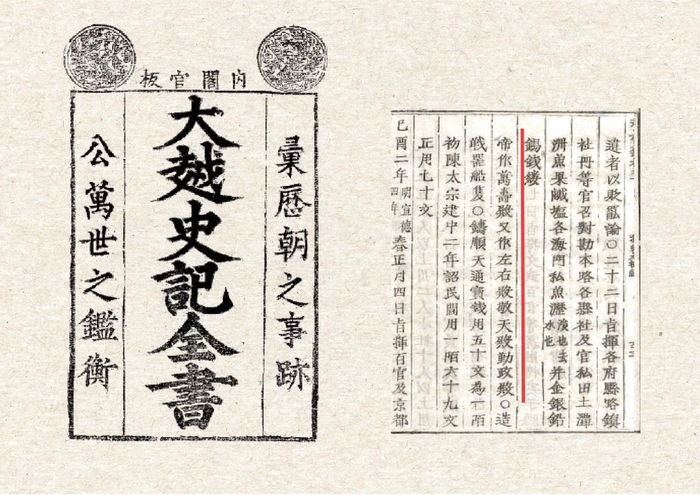 內閣官板
彙歷朝之事跡
大越史記全書
公萬世之鑑衡
違者以敗亂論○二十二日旨揮各府縣路鎮
社冊等官召對勘本路各縣社及官私田土潭
各海門私魚瀝 并金銀鉛
錫錢
帝作萬壽殿又作左右殿敬天殿勤政殿○造
戰器船隻○鑄順天通寶錢用五十文為一陌
初陳太宗建中二年詔民間用一陌六十九文
正用七十文
己酉二年明宣德四年春正月四日旨揮百官及京都